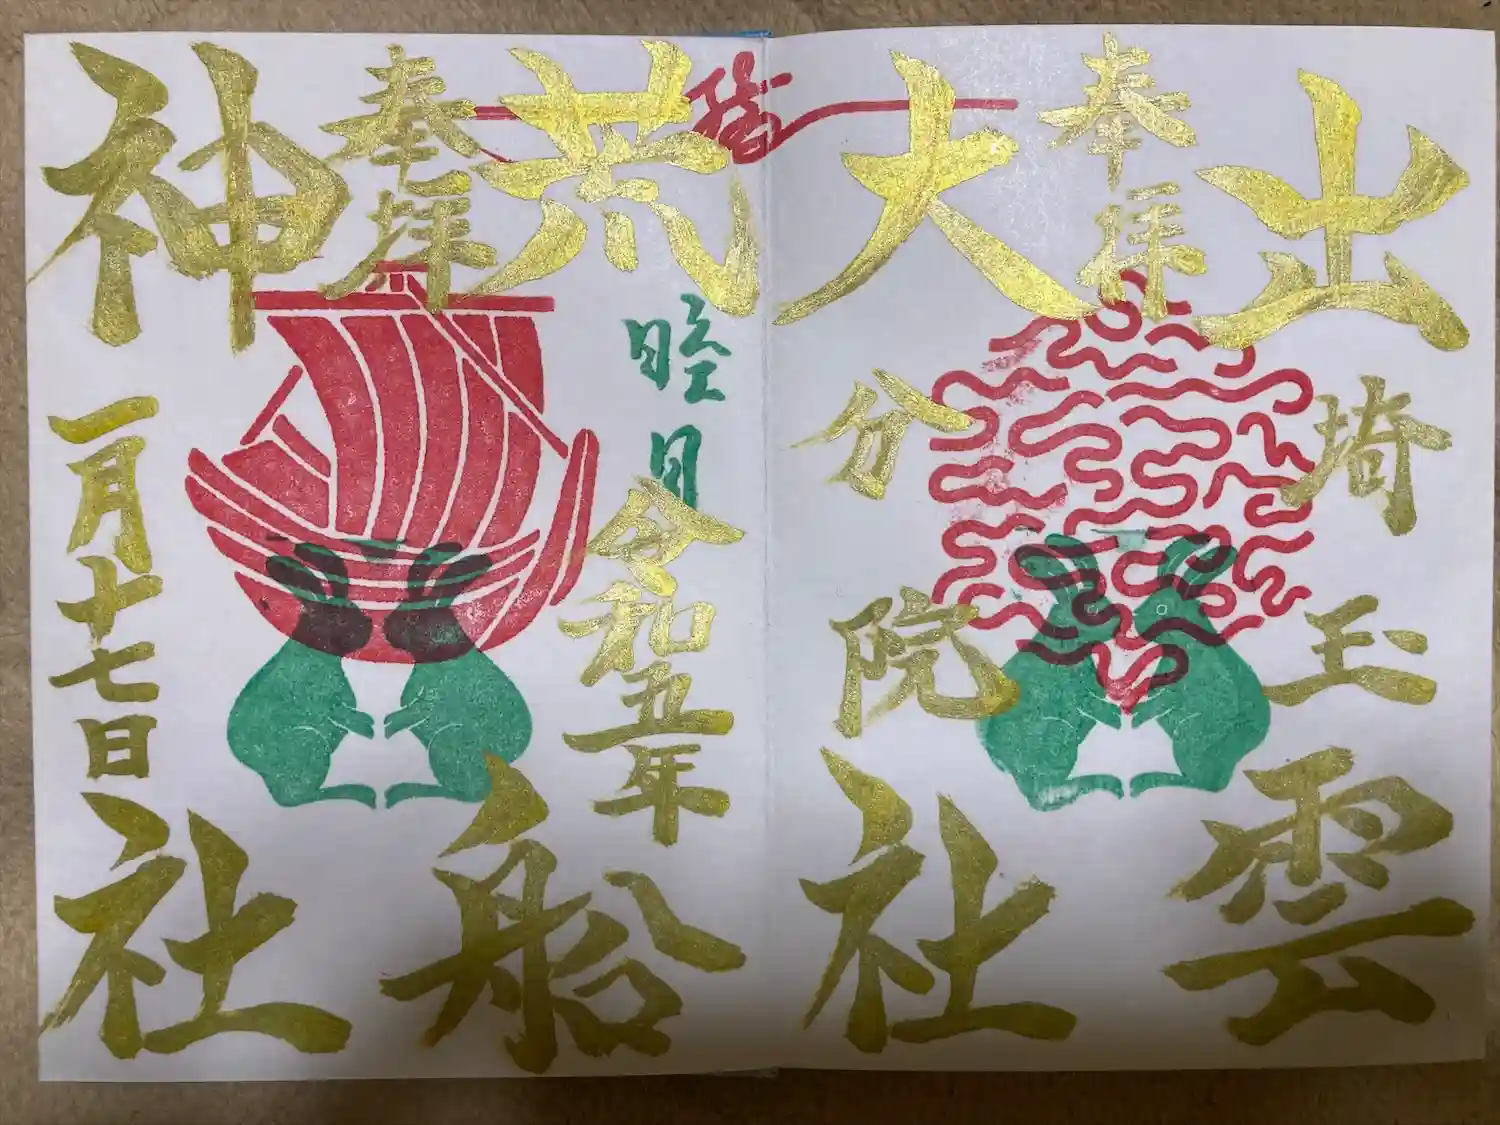 出雲
埼玉
奉拝
大社
分院
荒船
睦月
令和五年
奉拝
神社
一月十七日